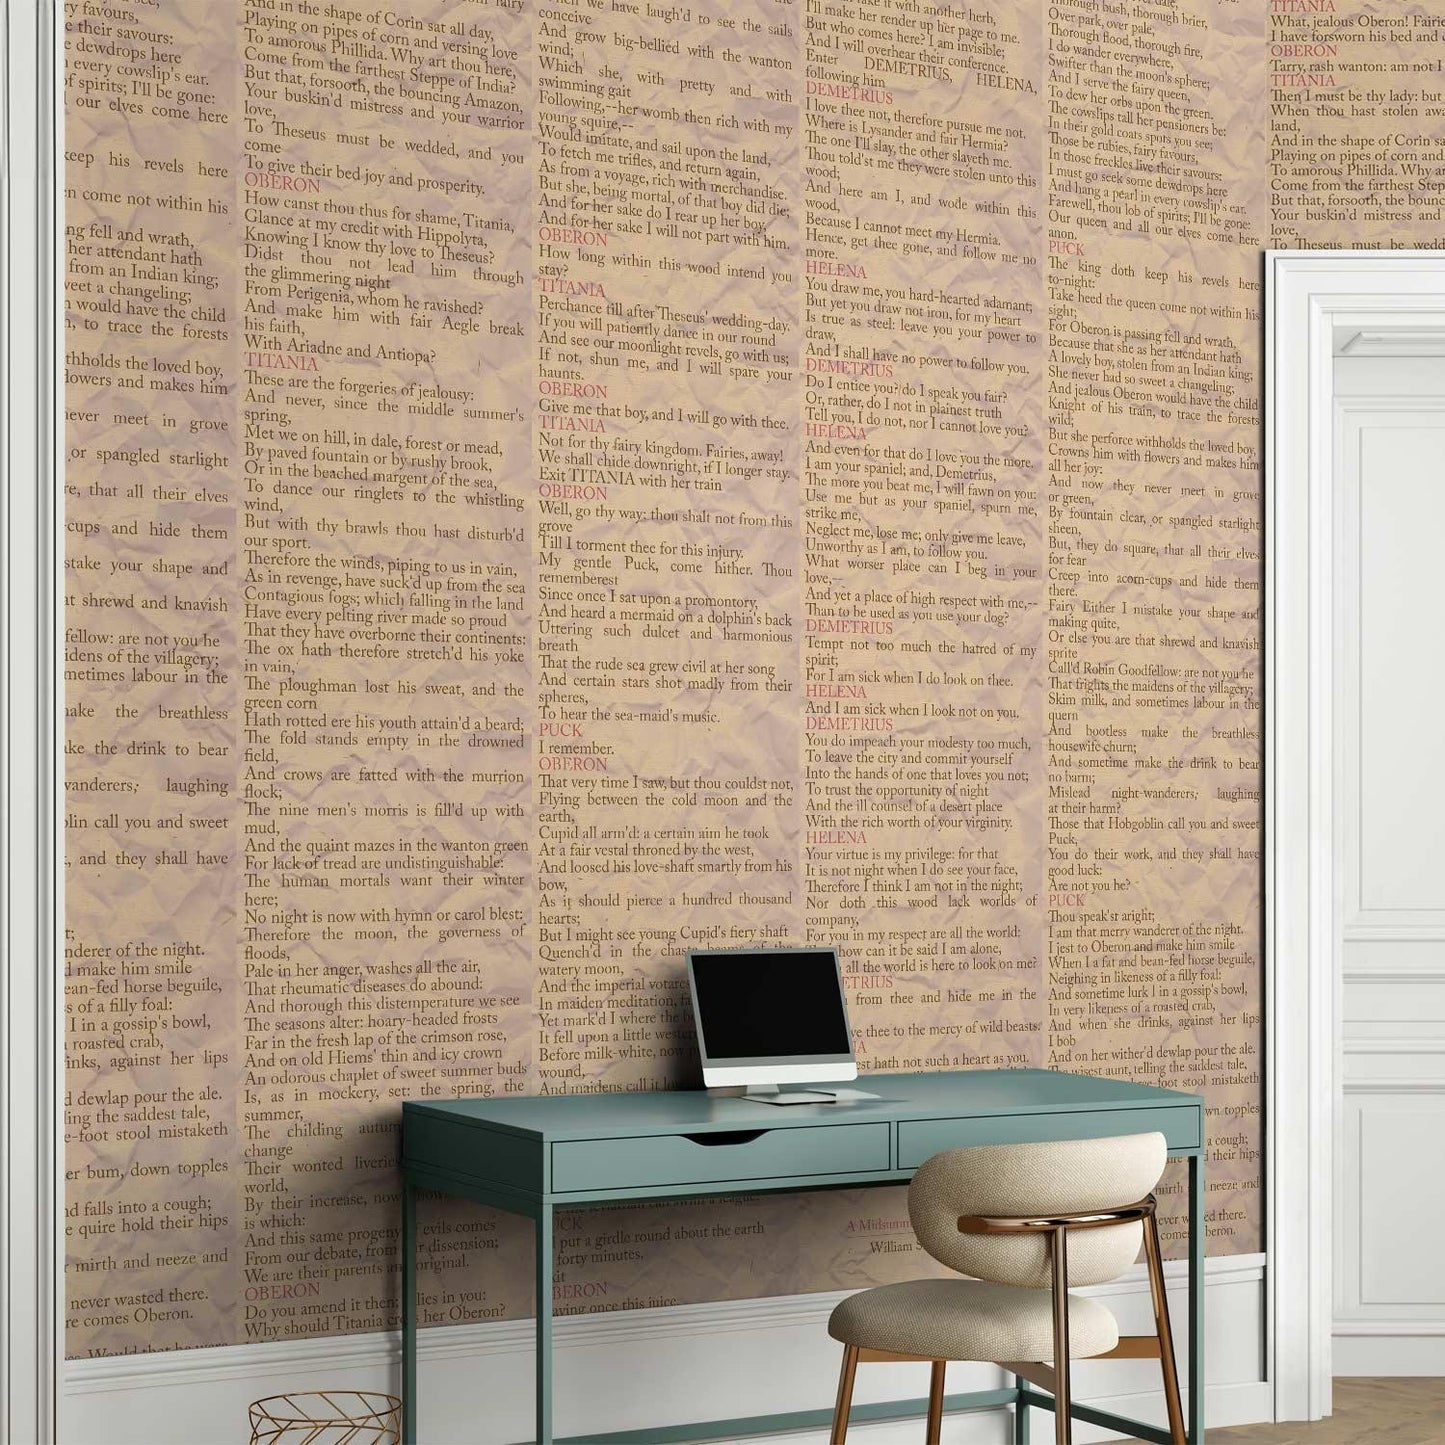 ry favours,
e their savours:
e dewdrops here
every cowslip's ear.
of spirits; I'll be gone:
our elves come here
keep his revels here
n come not within his
ng fell and wrath,
her attendant hath
from an Indian king;
weet a changeling;
n would have the child
n, to trace the forests
thholds the loved boy,
lowers and makes him
never meet in grove
or spangled starlight
re, that all their elves
-cups and hide them
stake your shape and
at shrewd and knavish
fellow: are not you he
idens of the villagery;
metimes labour in the
make the breathless
ake the drink to bear
wanderers; laughing
blin call you and sweet
, and they shall have
t;
nderer of the night.
d make him smile
ean-fed horse beguile,
s of a filly foal:
I in a gossip's bowl,
roasted crab,
inks, against her lips
d dewlap pour the ale.
ling the saddest tale,
e-foot stool mistaketh
er bum, down topples
nd falls into a cough;
e quire hold their hips
mirth and neeze and
never wasted there.
re comes Oberon.
es. Would that he were
And in the shape of Corin sat all day,
Playing on pipes of corn and versing love
To amorous Phillida. Why art thou here,
Come from the farthest Steppe of India?
But that, forsooth, the bouncing Amazon,
Your buskin'd mistress and your warrior
love,
To Theseus must be wedded, and you
come
To give their bed joy and prosperity.
OBERON
How canst thou thus for shame, Titania,
Glance at my credit with Hippolyta,
Knowing I know thy love to Theseus?
Didst thou not lead him through
the glimmering night
From Perigenia, whom he ravished?
And make him with fair Aegle break
his faith,
With Ariadne and Antiopa?
TITANIA
These are the forgeries of jealousy:
And never, since the middle summer's
spring,
Met we on hill, in dale, forest or mead,
By paved fountain or by rushy brook,
Or in the beached margent of the sea,
To dance our ringlets to the whistling
wind,
But with thy brawls thou hast disturb'd
our sport.
Therefore the winds, piping to us in vain,
As in revenge, have suck'd up from the sea
Contagious fogs; which falling in the land
Have every pelting river made so proud
That they have overborne their continents:
The ox hath therefore stretch'd his yoke
in vain,
The ploughman lost his sweat, and the
green corn
Hath rotted ere his youth attain'd a beard;
The fold stands empty in the drowned
field,
And crows are fatted with the murrion
flock;
The nine men's morris is fill'd up with
mud,
And the quaint mazes in the wanton green
For lack of tread are undistinguishable:
The human mortals want their winter
here;
No night is now with hymn or carol blest:
Therefore the moon, the governess of
floods,
Pale in her anger, washes all the air,
That rheumatic diseases do abound:
And thorough this distemperature we see
The seasons alter: hoary-headed frosts
Far in the fresh lap of the crimson rose,
And on old Hiems' thin and icy crown
An odorous chaplet of sweet summer buds
Is, as in mockery, set: the spring, the
summer,
The childing autum
change
Their wonted liverie
world,
By their increase, now know
is which:
And this same progeny evils comes
From our debate, from r dissension;
We are their parents an original.
OBERON
Do you amend it then; lies in you:
Why should Titania cr her Oberon?
When we have laugh'd to see the sails
conceive
And grow big-bellied with the wanton
wind;
Which she, with pretty and with
swimming gait
Following,--her womb then rich with my
young squire,--
Would imitate, and sail upon the land,
To fetch me trifles, and return again,
As from a voyage, rich with merchandise.
But she, being mortal, of that boy did die;
And for her sake do I rear up her boy,
And for her sake I will not part with him.
OBERON
How long within this wood intend you
stay?
TITANIA
Perchance till after Theseus' wedding-day.
If you will patiently dance in our round
And see our moonlight revels, go with us;
If not, shun me, and I will spare your
haunts.
OBERON
Give me that boy, and I will go with thee.
TITANIA
Not for thy fairy kingdom. Fairies, away!
We shall chide downright, if I longer stay.
Exit TITANIA with her train
OBERON
Well, go thy way; thou shalt not from this
grove
Till I torment thee for this injury.
My gentle Puck, come hither. Thou
rememberest
Since once I sat upon a promontory,
And heard a mermaid on a dolphin's back
Uttering such dulcet and harmonious
breath
That the rude sea grew civil at her song
And certain stars shot madly from their
spheres,
To hear the sea-maid's music.
PUCK
I remember.
OBERON
That very time I saw, but thou couldst not,
Flying between the cold moon and the
earth,
Cupid all arm'd: a certain aim he took
At a fair vestal throned by the west,
And loosed his love-shaft smartly from his
bow,
As it should pierce a hundred thousand
hearts;
But I might see young Cupid's fiery shaft
Quench'd in the chaste beams of the
watery moon,
And the imperial votares
In maiden meditation, fa
Yet mark'd I where the b
It fell upon a little weste
Before milk-white, now p
wound,
And maidens call it lo
Ere the leviathan can swim a league.
UCK
put a girdle round about the earth
forty minutes.
xit
BERON
aving once this juice,
take it with another herb,
I'll make her render up her page to me.
But who comes here? I am invisible;
And I will overhear their conference.
Enter DEMETRIUS, HELENA,
following him
DEMETRIUS
I love thee not, therefore pursue me not.
Where is Lysander and fair Hermia?
The one I'll slay, the other slayeth me.
Thou told'st me they were stolen unto this
wood;
And here am I, and wode within this
wood,
Because I cannot meet my Hermia.
Hence, get thee gone, and follow me no
more.
HELENA
You draw me, you hard-hearted adamant;
But yet you draw not iron, for my heart
Is true as steel: leave you your power to
draw,
And I shall have no power to follow you.
DEMETRIUS
Do I entice you? do I speak you fair?
Or, rather, do I not in plainest truth
Tell you, I do not, nor I cannot love you?
HELENA
And even for that do I love you the more.
I am your spaniel; and, Demetrius,
The more you beat me, I will fawn on you:
Use me but as your spaniel, spurn me,
strike me,
Neglect me, lose me; only give me leave,
Unworthy as I am, to follow you.
What worser place can I beg in your
love,--
And yet a place of high respect with me,--
Than to be used as you use your dog?
DEMETRIUS
Tempt not too much the hatred of my
spirit;
For I am sick when I do look on thee.
HELENA
And I am sick when I look not on you.
DEMETRIUS
You do impeach your modesty too much,
To leave the city and commit yourself
Into the hands of one that loves you not;
To trust the opportunity of night
And the ill counsel of a desert place
With the rich worth of your virginity.
HELENA
Your virtue is my privilege: for that
It is not night when I do see your face,
Therefore I think I am not in the night;
Nor doth this wood lack worlds of
company,
For you in my respect are all the world:
how can it be said I am alone,
all the world is here to look on me?
ETRIUS
from thee and hide me in the
ve thee to the mercy of wild beasts.
NA
est hath not such a heart as you.
A Midsumm
William S
Thorough bush, thorough brier,
Over park, over pale,
Thorough flood, thorough fire,
I do wander everywhere,
Swifter than the moon's sphere;
And I serve the fairy queen,
To dew her orbs upon the green.
The cowslips tall her pensioners be:
In their gold coats spots you see;
Those be rubies, fairy favours,
In those freckles live their savours:
I must go seek some dewdrops here
And hang a pearl in every cowslip's ear.
Farewell, thou lob of spirits; I'll be gone:
Our queen and all our elves come here
anon.
PUCK
The king doth keep his revels here
to-night:
Take heed the queen come not within his
sight;
For Oberon is passing fell and wrath,
Because that she as her attendant hath
A lovely boy, stolen from an Indian king;
She never had so sweet a changeling;
And jealous Oberon would have the child
Knight of his train, to trace the forests
wild;
But she perforce withholds the loved boy,
Crowns him with flowers and makes him
all her joy:
And now they never meet in grove
or green,
By fountain clear, or spangled starlight
sheen,
But, they do square, that all their elves
for fear
Creep into acorn-cups and hide them
there.
Fairy Either I mistake your shape and
making quite,
Or else you are that shrewd and knavish
sprite
Call'd Robin Goodfellow: are not you he
That frights the maidens of the villagery;
Skim milk, and sometimes labour in the
quern
And bootless make the breathless
housewife churn;
And sometime make the drink to bear
no barm;
Mislead night-wanderers, laughing
at their harm?
Those that Hobgoblin call you and sweet
Puck,
You do their work, and they shall have
good luck:
Are not you he?
PUCK
Thou speak'st aright;
I am that merry wanderer of the night.
I jest to Oberon and make him smile
When I a fat and bean-fed horse beguile,
Neighing in likeness of a filly foal:
And sometime lurk I in a gossip's bowl,
In very likeness of a roasted crab,
And when she drinks, against her lips
I bob
And on her wither'd dewlap pour the ale.
The wisest aunt, telling the saddest tale,
-foot stool mistaketh
wn topples
a cough;
d their hips
mirth neeze and
ever w ed there.
comes beron.
TITANIA
What, jealous Oberon! Fairie
I have forsworn his bed and c
OBERON
Tarry, rash wanton: am not I
TITANIA
Then I must be thy lady: but
When thou hast stolen awa
land,
And in the shape of Corin sa
Playing on pipes of corn and
To amorous Phillida. Why ar
Come from the farthest Step
But that, forsooth, the bounc
Your buskin'd mistress and
love,
To Theseus must be wedd